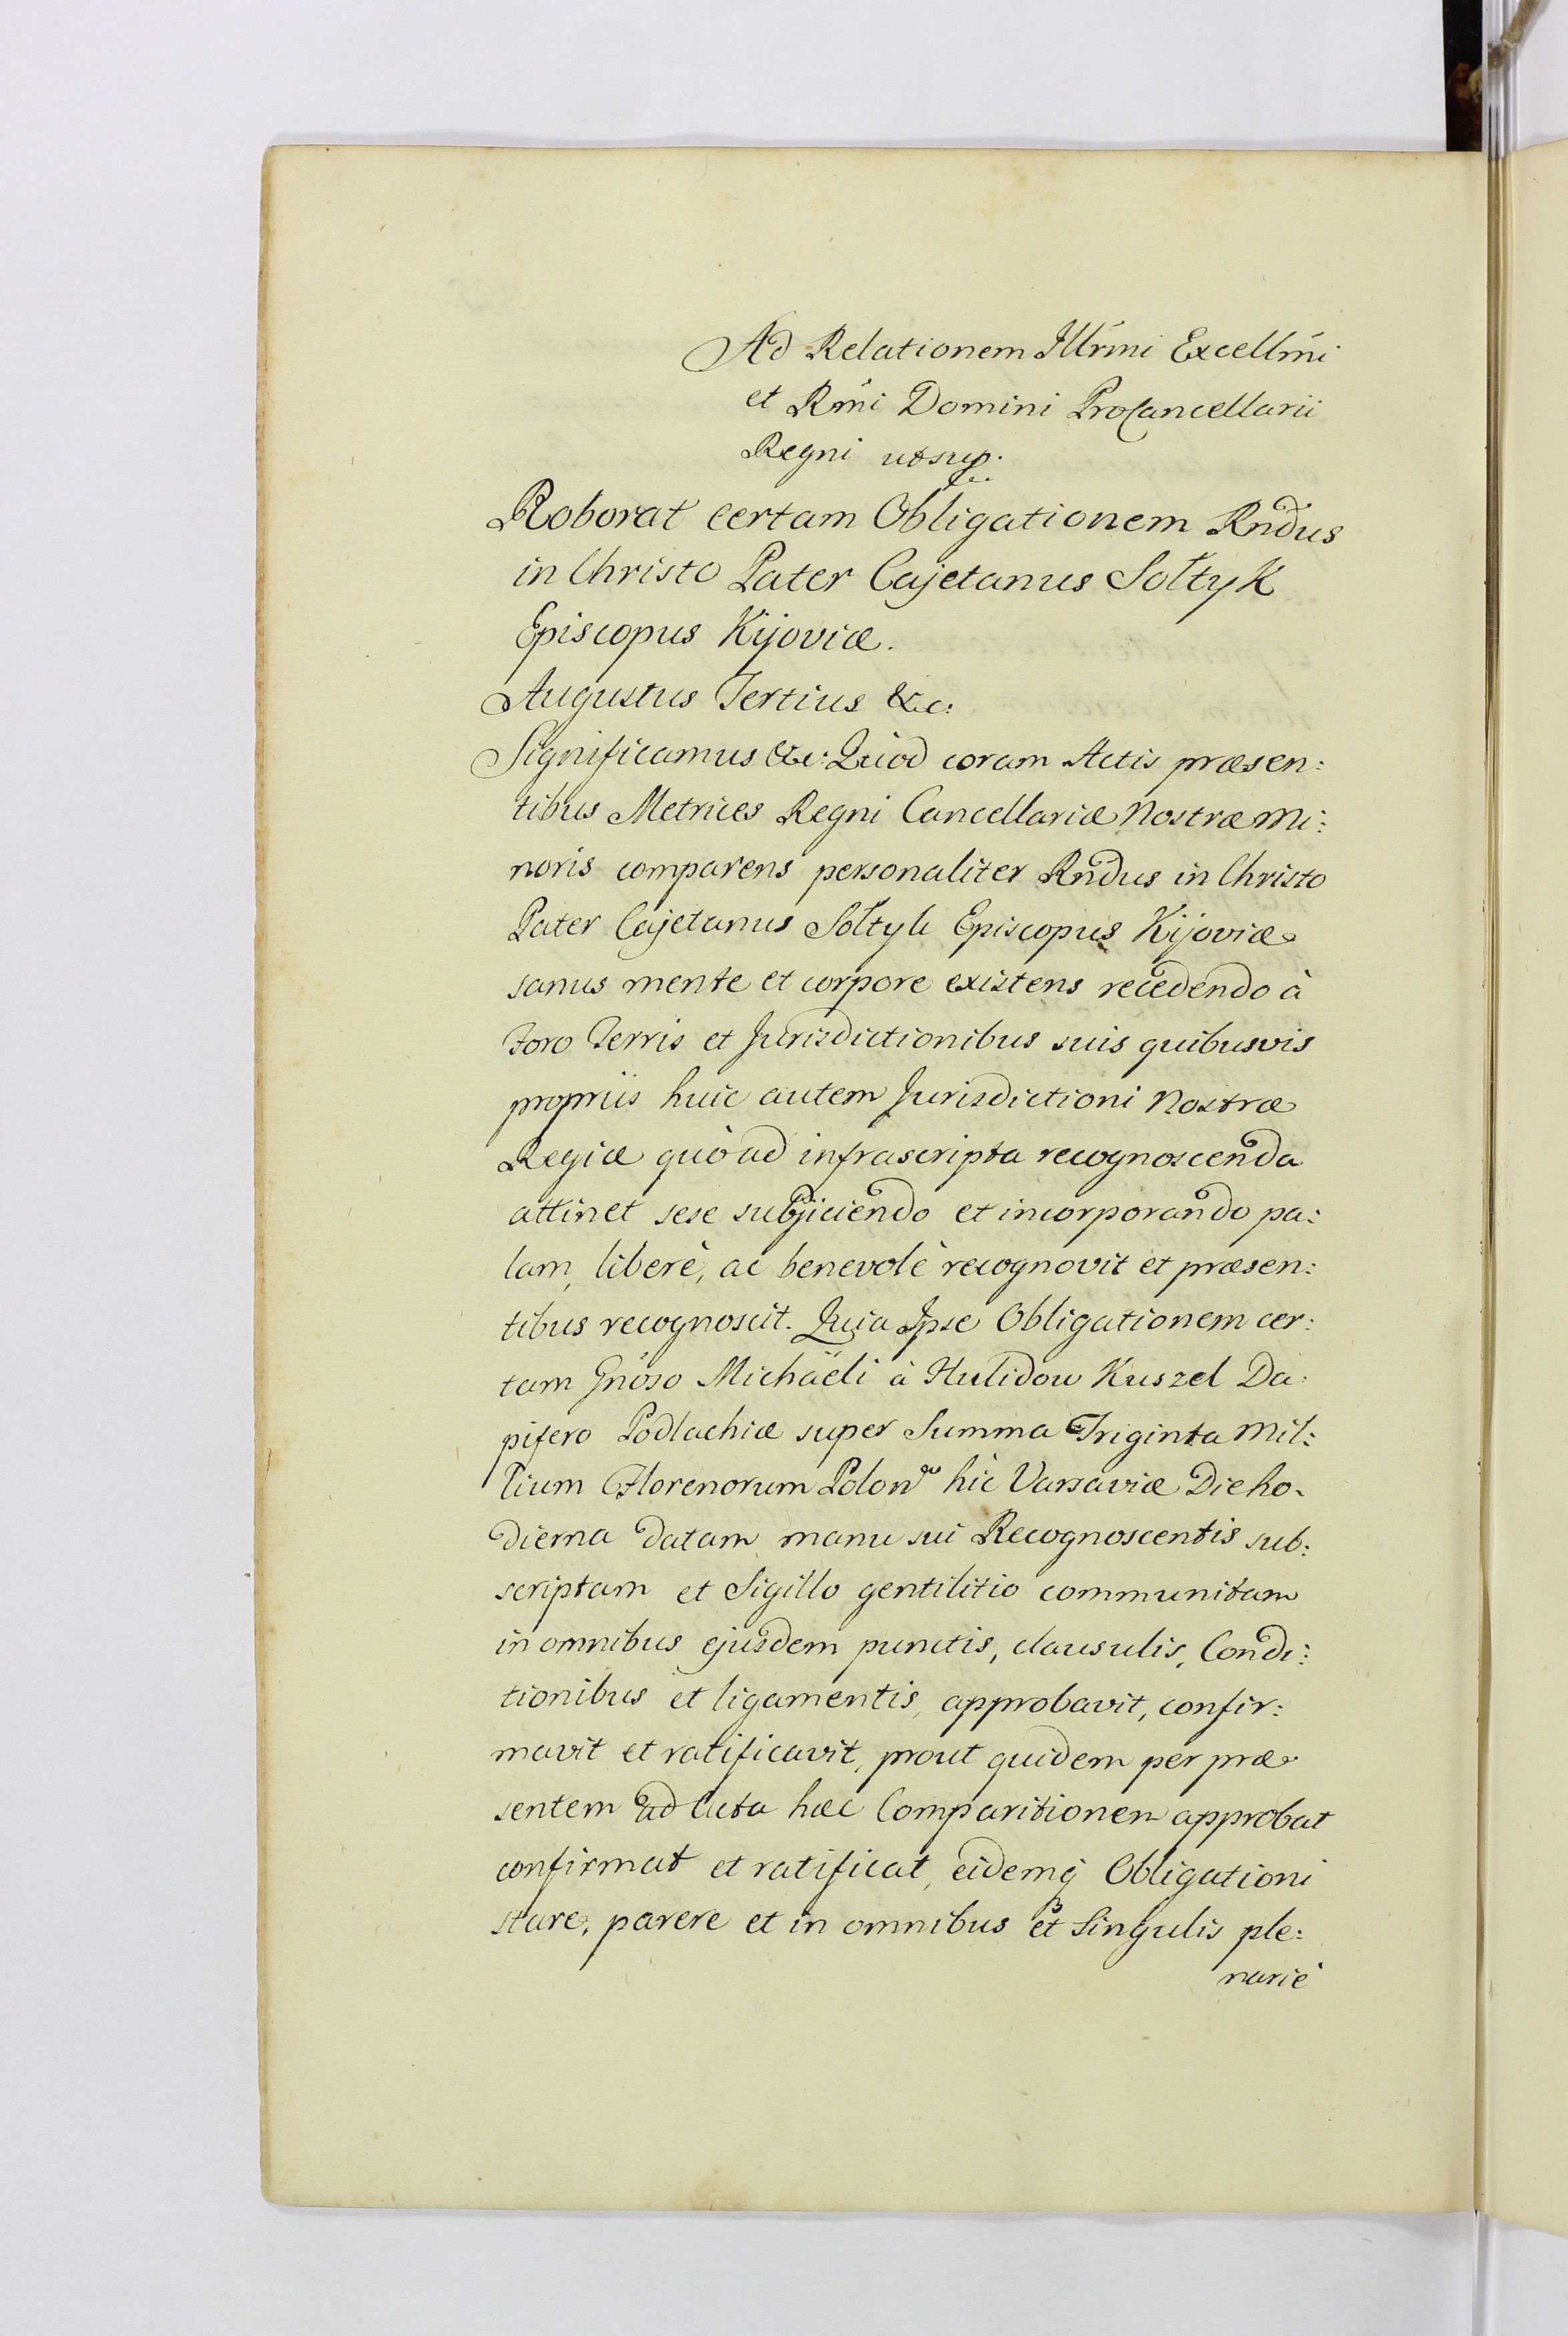 Ad Relationem Illrmi Excellmi
et Rmi Domini ProCancellarii
Regni utsup.
Roborat certam Obligationem Rndus
in Christo Pater Cajetanus Sołtyk
Episcopus Kijoviæ.
Augustus Tertius &c:
Significamus &c: Quod coram Actis præsen:
tibus Metrices Regni Cancellariæ Nostræ Mi:
noris comparens personaliter Rndus in Christo
Pater Cajetanus Sołtyk Episcopus Kijoviæ
sanus mente et corpore existens recedendo à
Foro Terris et Jurisdictionibus suis quibusvis
propriis huic autem Jurisdictioni Nostræ
Regiæ quòad infrascripta recognoscenda
attinet sese subjiciendo et incorporando pa:
lam, liberè, ac benevolè recognovit et præsen:
tibus recognoscit. Quia Ipse Obligationem cer:
tam Gnoso Michaëli à Hulidow Kuszel Da:
pifero Podlachiæ super Summa Triginta Mil:
lium Florenorum Polon hìc Varsaviæ Die ho-
dierna datam manu sui Recognoscentis sub:
scriptam et Sigillo gentilitio communitam
in omnibus ejusdem punctis, clausulis, Condi:
tionibus et ligamentis, approbavit, confir:
mavit et ratificavit, prout quidem per præ
sentem ad Acta hæc Comparitionem approbat
confirmat et ratificat, eidemq Obligationi
stare, parere et in omnibus et Singulis ple:
nariè